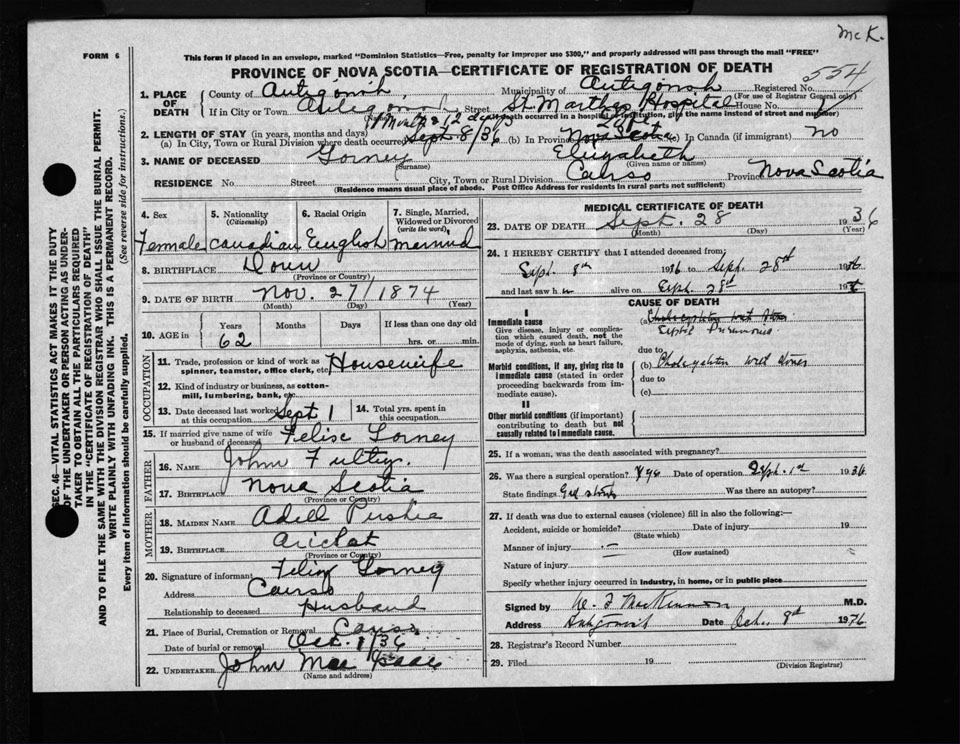 McK.
FORM 6
This form if placed in an envelope, marked "Dominion Statistics—Free, penalty for improper use $300," and properly addressed will pass through the mail "FREE"
PROVINCE OF NOVA SCOTIA—CERTIFICATE OF REGISTRATION OF DEATH
554
1. PLACE OF DEATH County of Antigonish, Municipality of Antigonish Registered No. (For use of Registrar General only)
If in City or Town Antigonish Street St. Marthas Hospital House No.
(Name) (If death occurred in a hospital or institution, give the name instead of street and number)
2. LENGTH OF STAY (in years, months and days)
(a) In City, Town or Rural Division where death occurred Sept 8/36 (b) In Province Nova Scotia (c) In Canada (if immigrant) no
3. NAME OF DECEASED Gorney Elizabeth
(Surname) (Given name or names)
RESIDENCE No. Street City, Town or Rural Division Canso Province Nova Scotia
(Residence means usual place of abode. Post Office Address for residents in rural parts not sufficient)
SEC. 46—VITAL STATISTICS ACT MAKES IT THE DUTY OF THE UNDERTAKER OR PERSON ACTING AS UNDERTAKER TO OBTAIN ALL THE PARTICULARS REQUIRED IN THE "CERTIFICATE OF REGISTRATION OF DEATH"
AND TO FILE THE SAME WITH THE DIVISION REGISTRAR WHO SHALL ISSUE THE BURIAL PERMIT.
WRITE PLAINLY WITH UNFADING INK. THIS IS A PERMANENT RECORD.
Every item of information should be carefully supplied. (See reverse side for instructions.)
4. Sex 5. Nationality (Citizenship) 6. Racial Origin 7. Single, Married, Widowed or Divorced (write the word)
Female Canadian English married
8. BIRTHPLACE
(Province or Country)
9. DATE OF BIRTH Nov. 27/1874
(Month) (Day) (Year)
10. AGE in Years Months Days If less than one day old
62 hrs. or min.
OCCUPATION
11. Trade, profession or kind of work as spinner, teamster, office clerk, etc. Housewife
12. Kind of industry or business, as cotton-mill, lumbering, bank, etc.
13. Date deceased last worked at this occupation Sept 1 14. Total yrs. spent in this occupation
15. If married give name of wife or husband of deceased
FATHER
16. NAME John Fultz.
17. BIRTHPLACE Nova Scotia
(Province or Country)
MOTHER
18. MAIDEN NAME Adell
19. BIRTHPLACE Arichat
(Province or Country)
20. Signature of informant Felix
Address Canso
Relationship to deceased Husband
21. Place of Burial, Cremation or Removal Canso
Date of burial or removal Oct. 1/36
22. UNDERTAKER John Mac Isaac
(Name and address)
MEDICAL CERTIFICATE OF DEATH
23. DATE OF DEATH Sept. 28 1936
(Month) (Day) (Year)
24. I HEREBY CERTIFY that I attended deceased from:
Sept. 8th 1936 to Sept. 28th 1936
and last saw h alive on Sept. 28th 1936
CAUSE OF DEATH
I
Immediate cause
Give disease, injury or complication which caused death, not the mode of dying, such as heart failure, asphyxia, asthenia, etc.
(a) Septic Pneumonia
due to
Morbid conditions, if any, giving rise to immediate cause (stated in order proceeding backwards from immediate cause).
(b) with stones
due to
(c)
II
Other morbid conditions (if important) contributing to death but not causally related to immediate cause.
25. If a woman, was the death associated with pregnancy?
26. Was there a surgical operation? yes Date of operation Sept. 1st 1936
State findings Gall stones Was there an autopsy?
27. If death was due to external causes (violence) fill in also the following:—
Accident, suicide or homicide? Date of injury 19
(State which)
Manner of injury
(How sustained)
Nature of injury
Specify whether injury occurred in industry, in home, or in public place
Signed by W. F. MacKinnon M.D.
Address Antigonish Date Oct. 9th 1936
28. Registrar's Record Number
29. Filed 19 (Division Registrar)